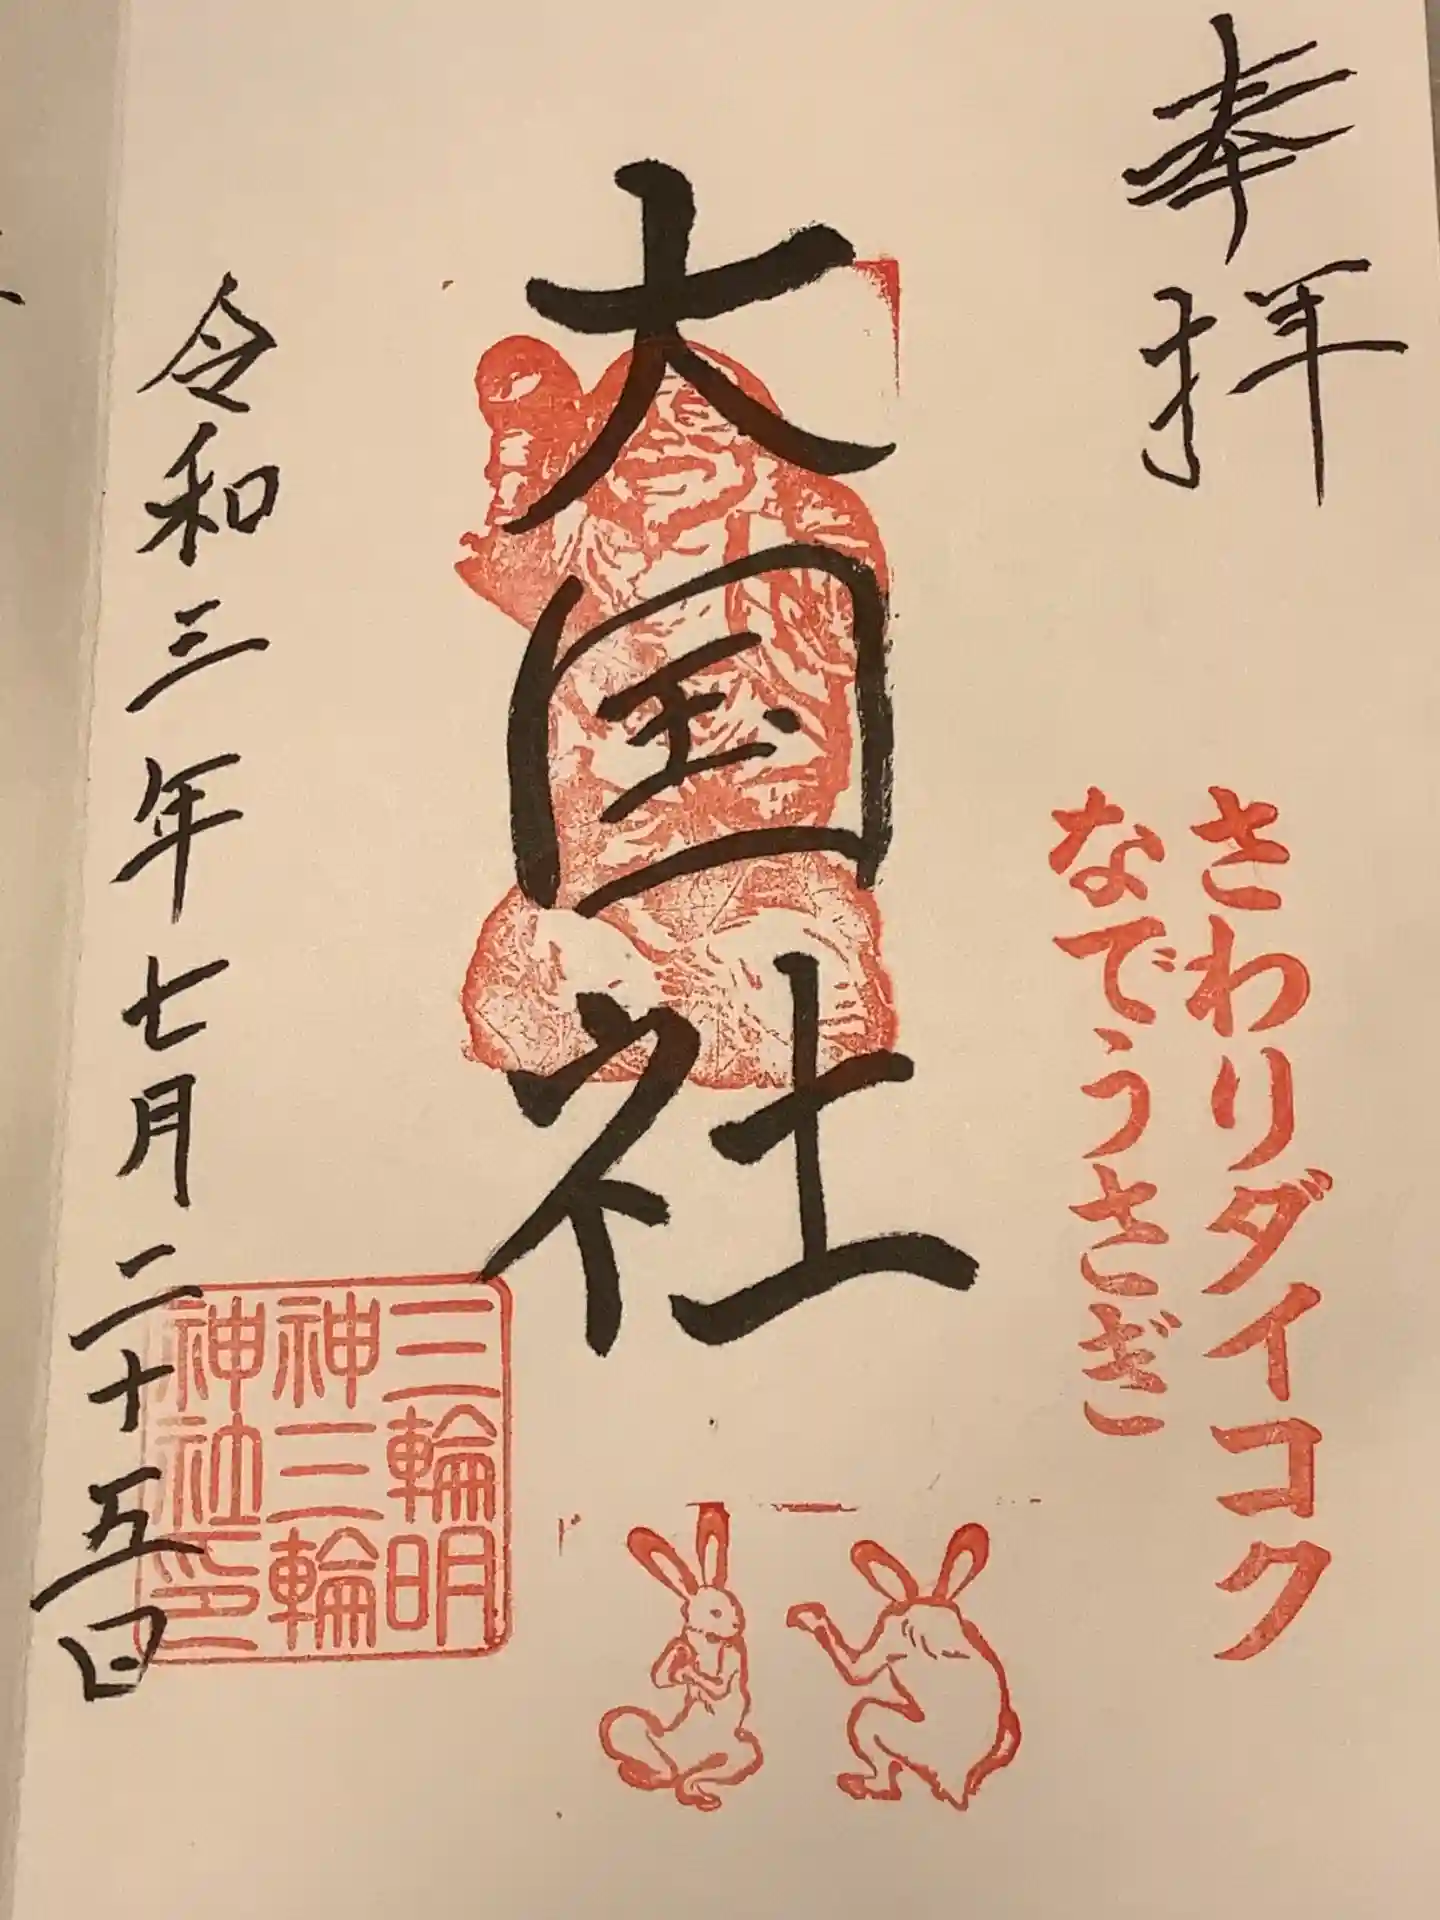 奉拝
さわりダイコク
なでうさぎ
大国社
三輪明
神三輪
神社印
令和三年七月二十五日